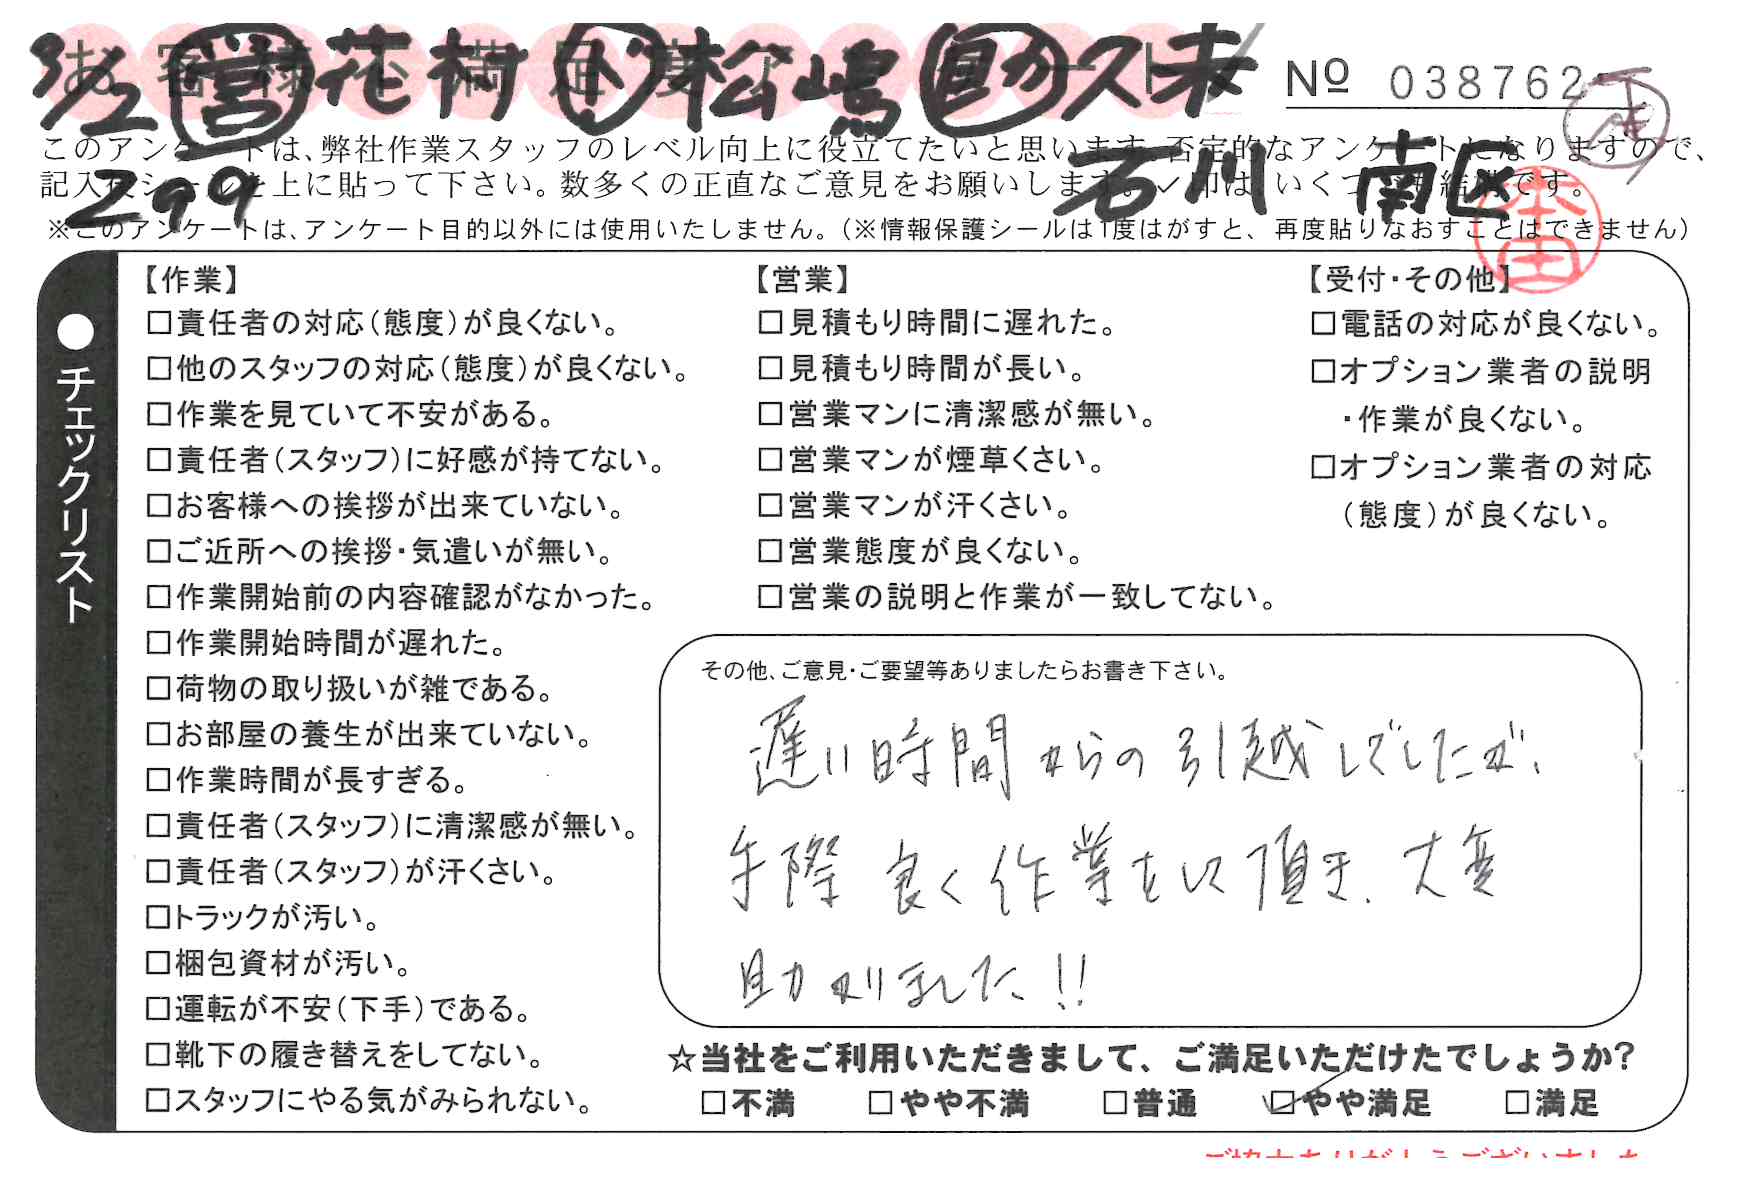 お客様不満足度アンケート
3/2 営 花村 ド 松嶋 助 久未
№ 038762
石川 南区
299
このアンケートは、弊社作業スタッフのレベル向上に役立てたいと思います。否定的なアンケートになりますので、
記入後シールを上に貼って下さい。数多くの正直なご意見をお願いします。✓印は、いくつでも結構です。
※このアンケートは、アンケート目的以外には使用いたしません。（※情報保護シールは1度はがすと、再度貼りなおすことはできません）
●チェックリスト
【作業】
□責任者の対応（態度）が良くない。
□他のスタッフの対応（態度）が良くない。
□作業を見ていて不安がある。
□責任者（スタッフ）に好感が持てない。
□お客様への挨拶が出来ていない。
□ご近所への挨拶・気遣いが無い。
□作業開始前の内容確認がなかった。
□作業開始時間が遅れた。
□荷物の取り扱いが雑である。
□お部屋の養生が出来ていない。
□作業時間が長すぎる。
□責任者（スタッフ）に清潔感が無い。
□責任者（スタッフ）が汗くさい。
□トラックが汚い。
□梱包資材が汚い。
□運転が不安（下手）である。
□靴下の履き替えをしてない。
□スタッフにやる気がみられない。
【営業】
□見積もり時間に遅れた。
□見積もり時間が長い。
□営業マンに清潔感が無い。
□営業マンが煙草くさい。
□営業マンが汗くさい。
□営業態度が良くない。
□営業の説明と作業が一致してない。
【受付・その他】
□電話の対応が良くない。
□オプション業者の説明
・作業が良くない。
□オプション業者の対応
（態度）が良くない。
その他、ご意見・ご要望等ありましたらお書き下さい。
遅い時間からの引越しでしたが、
手際良く作業をして頂き、大変
助かりました!!
☆当社をご利用いただきまして、ご満足いただけたでしょうか？
□不満 □やや不満 □普通 ☑やや満足 □満足
ご協力ありがとうございました